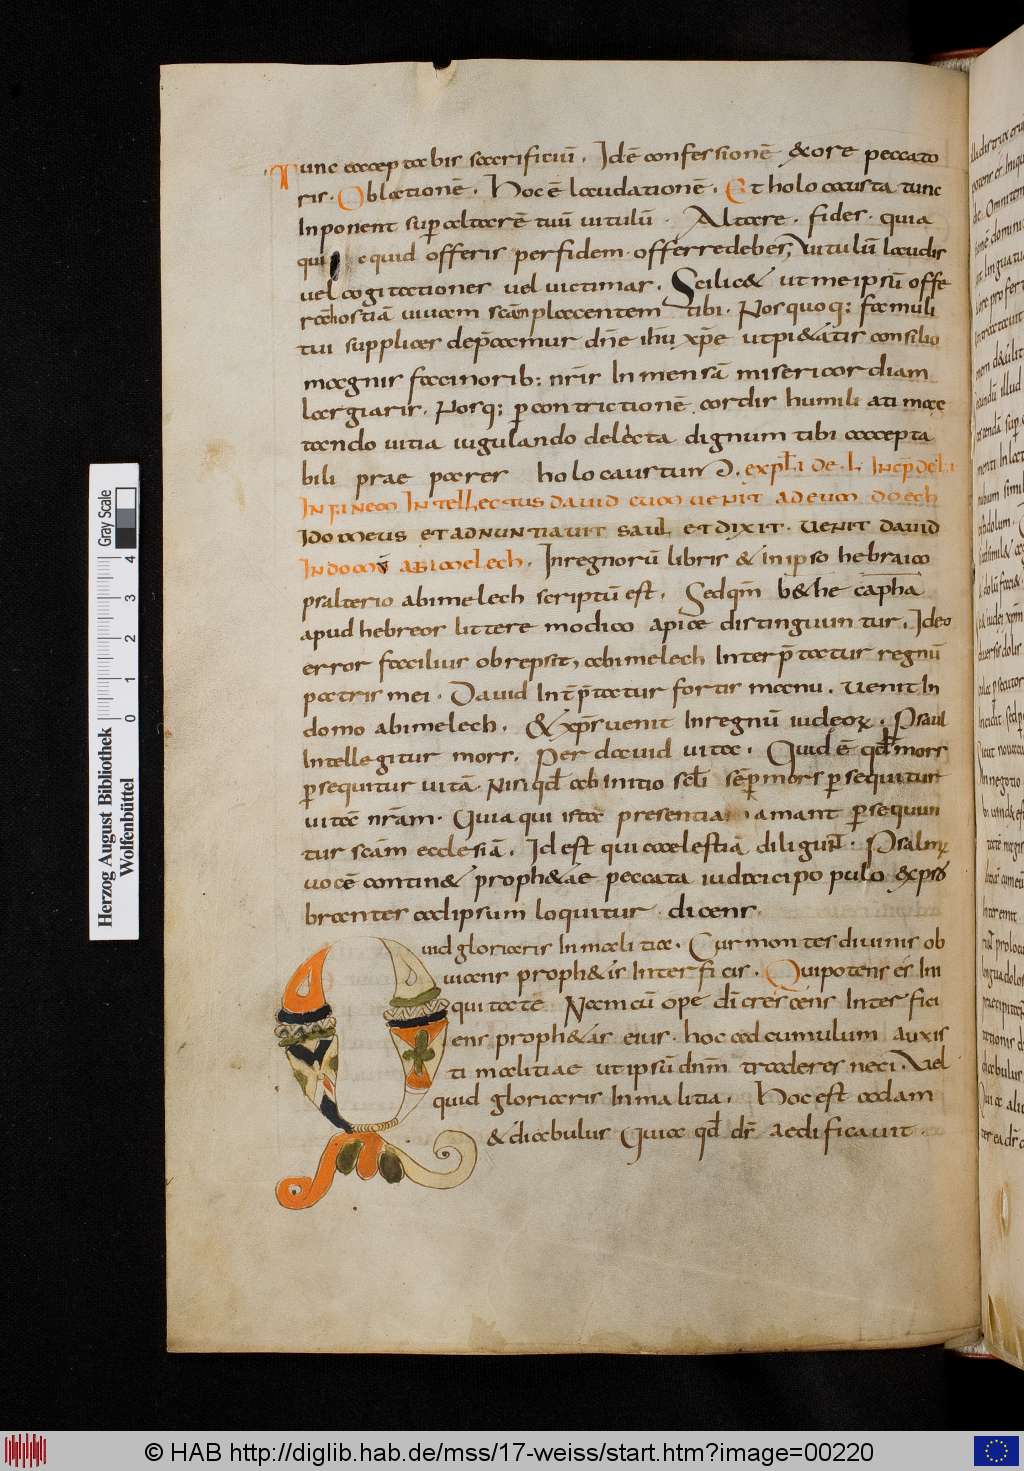 Tunc acceptabis sacrificiū. Idē confessionē &ore peccato
ris. Oblationē. Hoc ē laudationē. Et holocausta tunc
Inponent sup altarē tuū uitulū. Altare. fides. quia
qui cquid offeris perfidem. offerredebes, Vitulū laudis
uel cogitationes uel uictimas. Scilic& ut meipsū offe
rā hostiā uiuam scām placentem tibi. Nos quoq: famuli
tui supplices dep̄camur dn̄e ihū xp̄e ut pi&atis consilio
magnis facinorib: nr̄is Inmensā misericordiam
largiaris. Nosq; p contrictionē cordis humiliati mac
tando uitia iugulando delecta dignum tibi accepta
bili prae pares holocaustum. expl̄i de.L. Incp̄ de.li
In finem Intellectus dauid cum uenit ad eum doech
Idomeus et adnuntiauit saul et dixit. uenit dauid
Indomū abimelech. Inregnorū libris & inipso hebraico
psalterio abimelech scriptū est. Sedqm̄ b&he capha
apud hebreos littere modico apice distinguuntur. Ideo
error facilius obrepsit, abimelech Interp̄tatur regnū
patris mei. Dauid Int̄p̄tatur fortis manu. uenit In
domo abimelech. & xp̄s uenit Inregnū iudeoꝝ. Saul
Intellegitur mors. Per dauid uita. Quid ē qd̄ mors
psequitur uitā. Nisi qd̄ ab initio scl̄i sēp mors psequitur
uitā nr̄am. Quia qui istā presentia amant psequun
tur scām ecclesiā. Id est qui caelestiā diligun̄t. Psalmꝰ
uocē contin& proph&ae peccata iudaici populo exp̄b
brantes adipsum loquitur dicens.
uid gloriaris Inmalitia. Cur montes diuinis ob
uians proph&is Interficis. Qui potens es Ini
quitate Nam cū ope dī crescens Interfici
ens proph&as eius. hoc ad cumulum auxis
ti malitiae ut ipsū dnm̄ traderes neci. Vel
quid gloriaris Inmalitia. Hoc est adam
& diabulus Quia qd̄ dr̄ aedificauit.
Herzog August Bibliothek
Wolfenbüttel
Gray Scale
0 1 2 3 4
© HAB http://diglib.hab.de/mss/17-weiss/start.htm?image=00220